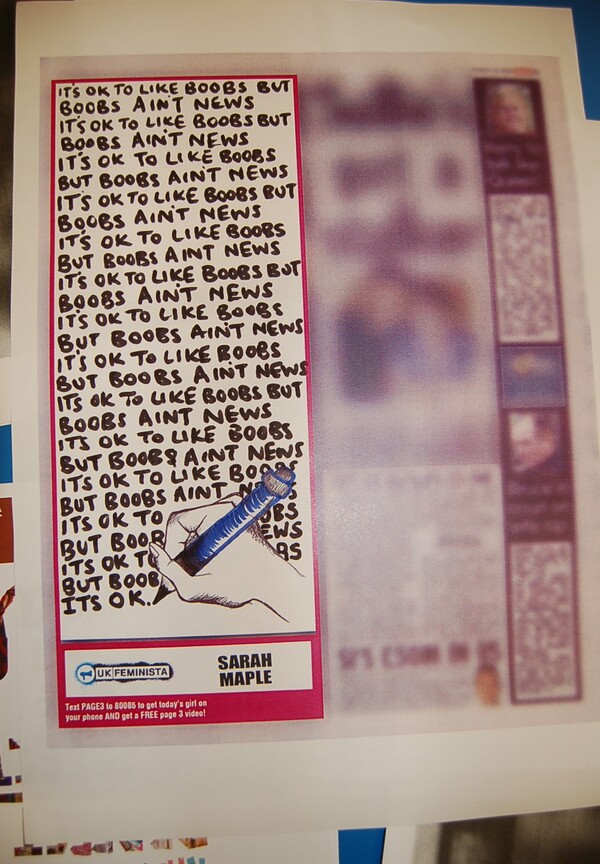 IT'S OK TO LIKE BOOBS BUT
BOOBS AIN'T NEWS
IT'S OK TO LIKE BOOBS BUT
BOOBS AIN'T NEWS
IT'S OK TO LIKE BOOBS
BUT BOOBS AIN'T NEWS
IT'S OK TO LIKE BOOBS BUT
BOOBS AIN'T NEWS
IT'S OK TO LIKE BOOBS
BUT BOOBS AINT NEWS
IT'S OK TO LIKE BOOBS BUT
BOOBS AIN'T NEWS
IT'S OK TO LIKE BOOBS
BUT BOOBS AIN'T NEWS
IT'S OK TO LIKE BOOBS
BUT BOOBS AIN'T NEWS
ITS OK TO LIKE BOOBS BUT
BOOBS AINT NEWS
ITS OK TO LIKE BOOBS
BUT BOOBS AINT NEWS
ITS OK TO LIKE BOOBS
BUT BOOBS AINT N
ITS OK TO OBS
BUT BOOB EWS
ITS OK TO BS
BUT BOOB
ITS OK.
UK FEMINISTA
SARAH
MAPLE
Text PAGE3 to 80085 to get today's girl on
your phone AND get a FREE page 3 video!